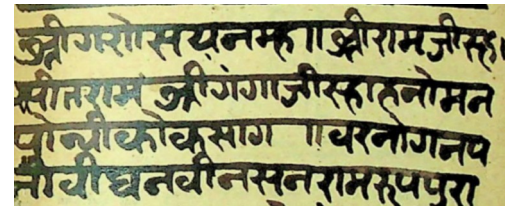 श्रीगरोसयनम्ह॥श्रीरामजीसहा
सीतराम श्रीगंगाजीसहाहनोमन
पोथीकोकसाग ॥वरनोगनप
तीवीघनवीनसनरामरुपपुरा